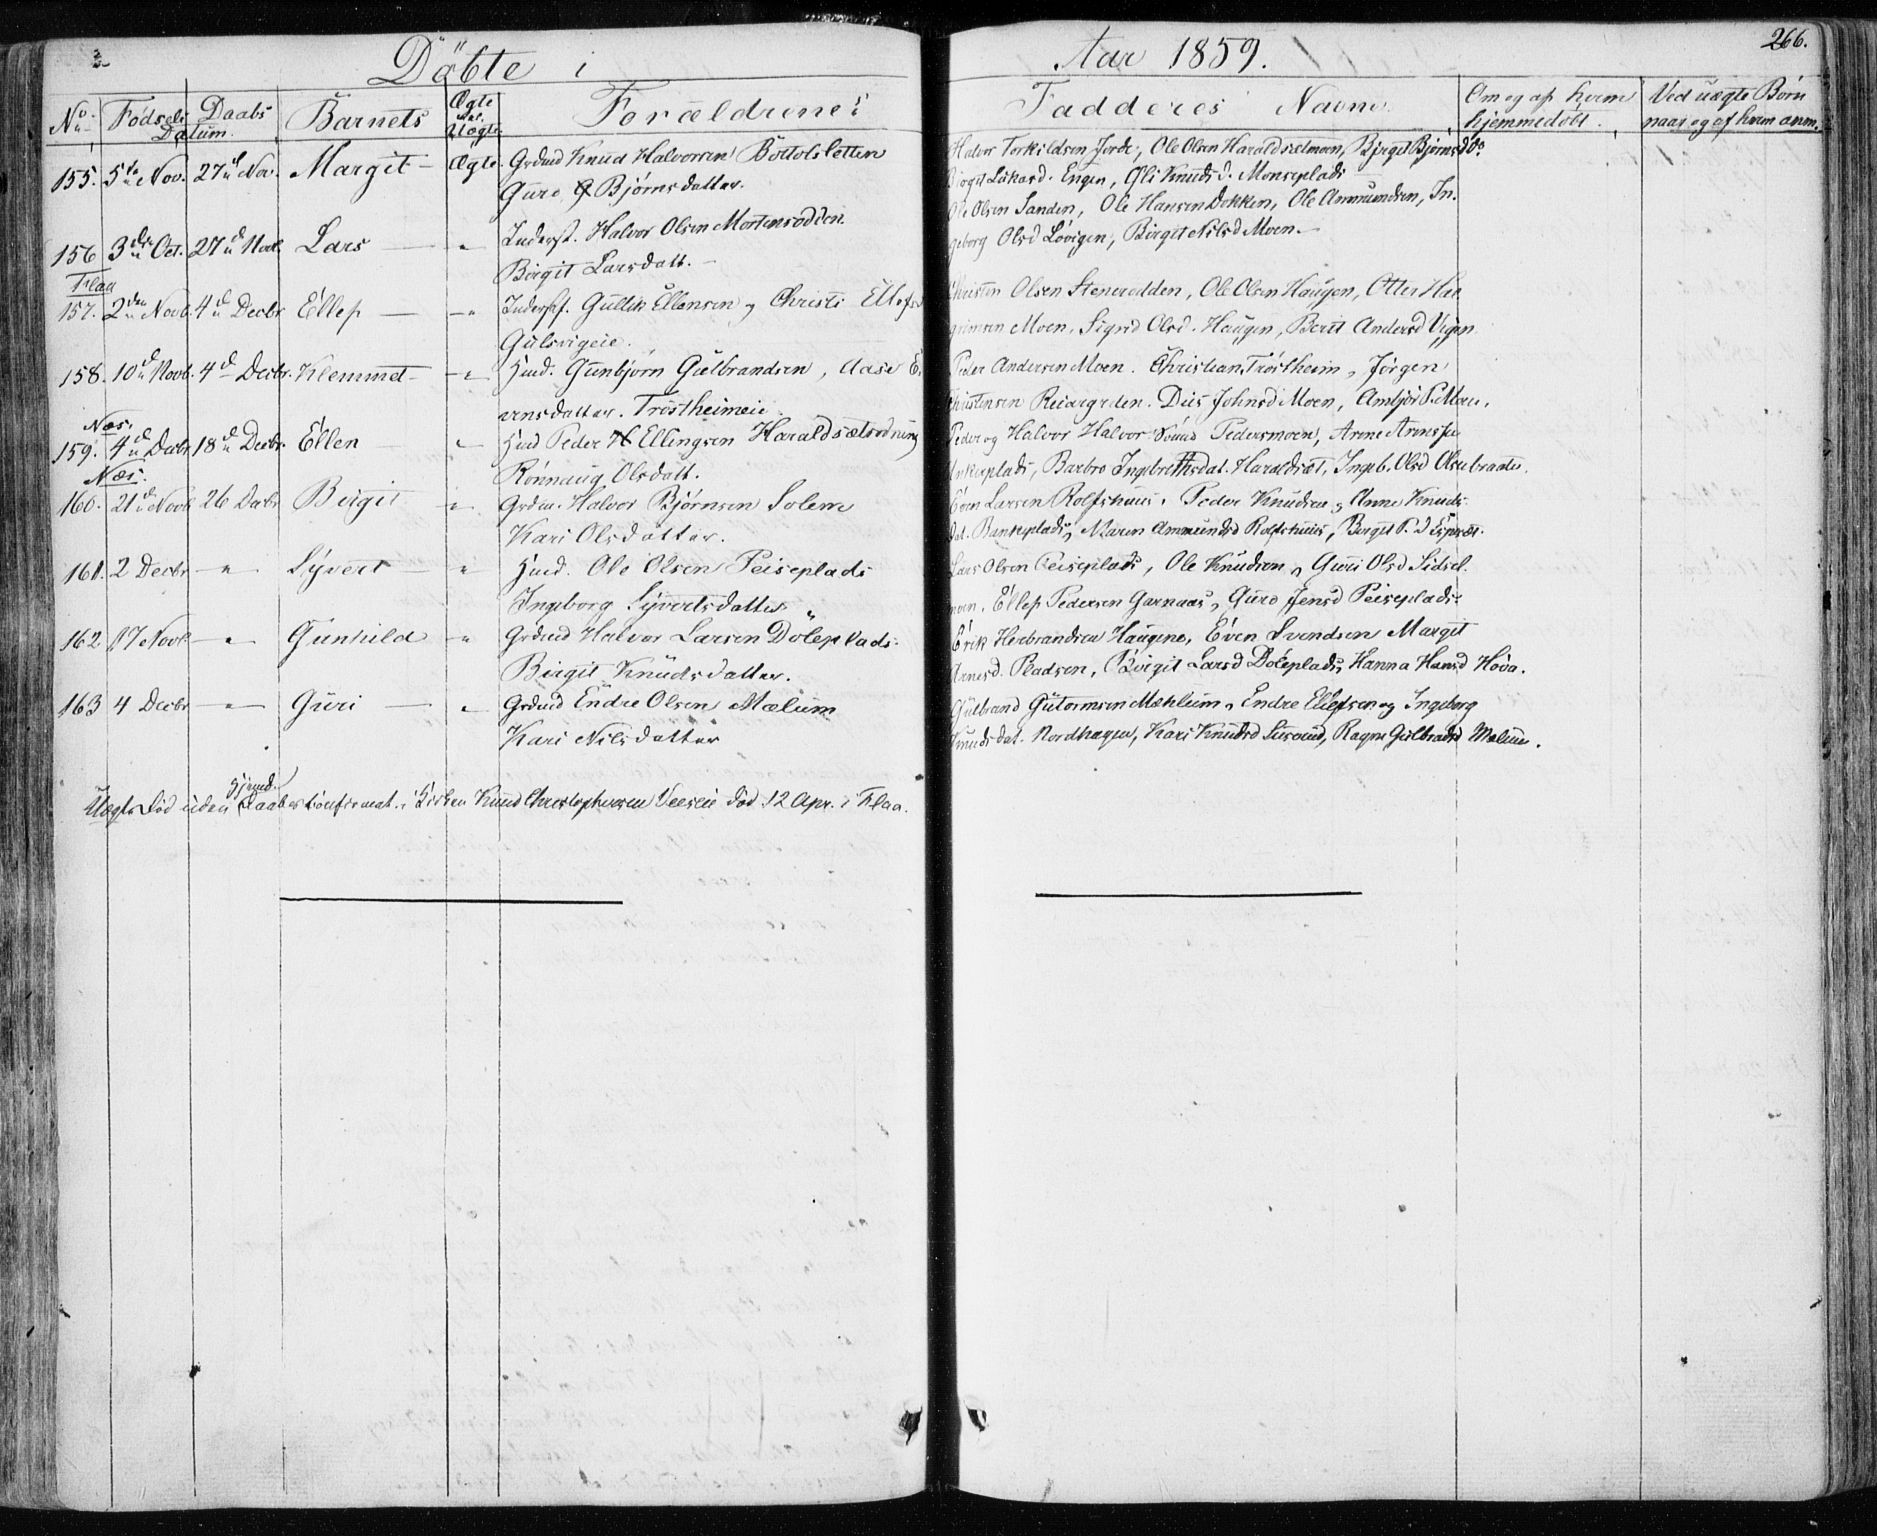 Döbte i Aar 1859. 266.
No. Födsels Daabs Datum. Barnets Ægte Uægte Forældrenes Fadderes Navne Om og af hvem hjemmedöbt. Ved uægte Börn naar og af hvem anm.
155. 5te Nov. 27d Nov. Margit Ægte Grdmd Knud Halvorsen Bottolsletten
Guro Björnsdatter.
Halvor Torkildsen Jorde, Ole Olsen Haraldsetmoen, Birgit Björnsd do
Birgit Engen, Knudsd. Monseplads
156 3die Oct. 27d Nov. Lars " Inderst. Halvor Olsen Mortensodden
Birgit Larsdatt.
Ole Olsen Sanden, Ole Hansen Dokken, Ole Ammundsen, In-
geborg Olsd Lövigen, Birgit Nilsd Moen.
Flaa
157. 2den Novb. 4d Decbr Ellef " Inderst. Gullik Ellensen og Christi Ellefsd
Gulsvigeie.
Christen Olsen Steneredden, Ole Olsen Haugen, Otter Hal
grimsen Moen, Sigrid Olsd. Haugen, Berit Andersd Vigen
158. 10d Novb. 4d Decbr. Klemmet " Husd. Gunbjörn Gulbrandsen, Aase E
vensdatter. Tröstheimeie.
Peder Andersen Moen. Christian Tröstheim, Jörgen
Christensen Johnsd Moen, Ambjör P. Moen.
Næs.
159. 4d Decbr 18d Decbr. Ellen " Husd Peder Ellingsen Haraldsætsodning
Rönnaug Olsdatt.
Peder og Halvor Halvor Pedersmoen, Arne
Barbro Ingebrethsdat. Haraldsæt, Ingeb. Olsd Olsebraate.
Næs.
160. 21d Novb 26 Decbr Birgit " Grdm. Halvor Björnsen Solem
Kari Olsdatter.
Even Larsen Rolfshuus, Peder Knudsen, Anne Knuds-
dat. Bankeplads, Maren Ammundsd Rolfshuus, Birgit P. d
161. 2 Decbr " Syvert " Husd. Ole Olsen Peiseplads
Ingeborg Syvertsdatter
Lars Olsen Peiseplads, Ole Knudsen, Guri Olsd Sidsel-
moen, Ellef Pedersen Garnaas, Guro Jensd Peiseplads
162 17 Novb " Gunhild " Grdmd Halvor Larsen Döleplads
Birgit Knudsdatter.
Erik Herbrandsen Haugene, Even Svendsen Margit
Arnesd. Pladsen, Birgit Larsd Döleplads, Hanna Hansd Hova.
163 4 Decbr " Guri " Grdmd Endre Olsen Mælum
Kari Nilsdatter
Gulbrand Gutormsen Mæhlum, Endre Ellefsen og Ingeborg
Knudsdat. Nordhagen, Kari Knudsd Ragne Gulbrandsd Mælum.
Uægte död uden hjemd. Daabs Confirmat. i Kirken Knud Christophersen Veeseie död 12 Apr. i Flaa.